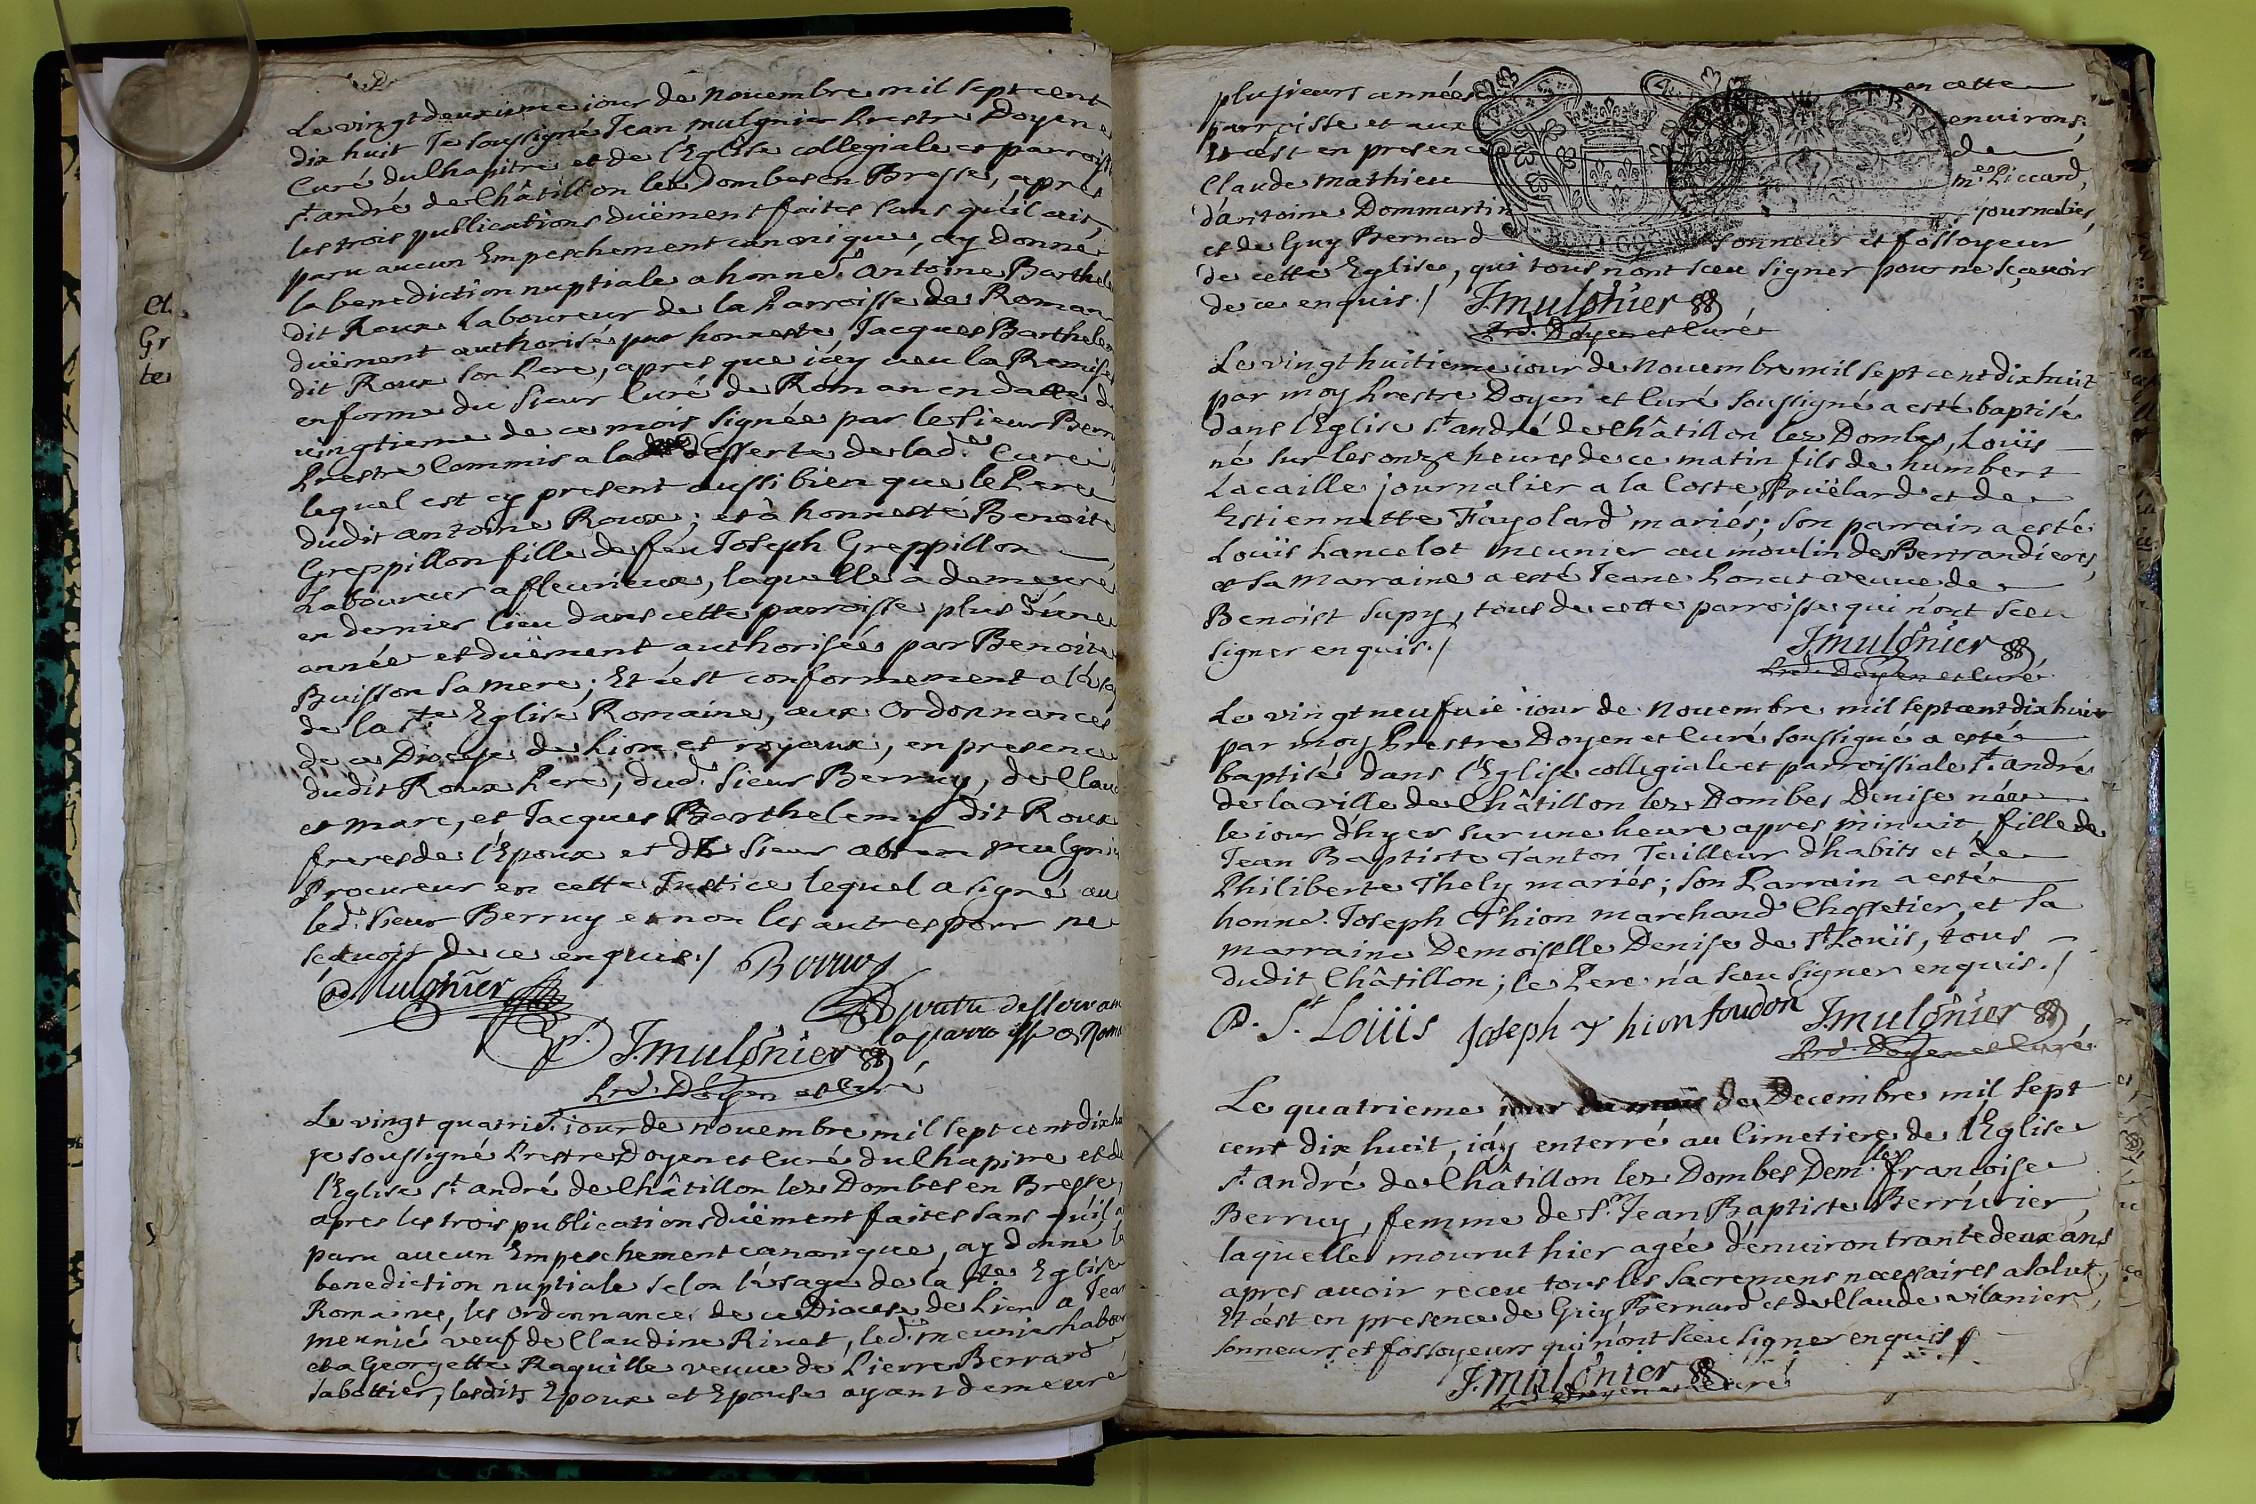 Le vingt deuxieme iour de Nouembre mil sept cent
dix huit Je soussigné Jean mulgnier Prestre Doyen et
Curé du Chapitre et de l'Eglise collegiale et parroiss
st. andré de Châtillon lez Dombes en Bresse, apres
les trois publications düëment faites sans qu'il ait
paru aucun Empeschement canonique, ay donné
la benediction nuptiale a honne. Antoine Barthel
dit Roux Laboureur de la Parroisse de Roman
düëment authorisé par honneste Jacques Barthelem
dit Roux son Pere, apres que i'ay veu la Remise
en forme du sieur Curé de Roman en datte d
vingtieme de ce mois signée par le sieur Berr
Prestre Commis a la desserte de lad. Cure
lequel est cy present aussi bien que le Pere
dudit antoine Roux; et à honneste Benoite
Greppillon fille de feu Joseph Greppillon
Laboureur a fleurieux, laquelle à demeuré
en dernier lieu dans cette parroisse plus d'une
année et düëment authorisée par Benoite
Buisson sa mere; Et c'est conformement a l'usa
de la ste Eglise Romaine, aux Ordonnances
de ce Diocese de Lion et royaux, en presence
dudit Roux Pere, dud. sieur Berruy, de Clau
et marc, et Jacques Barthelemy dit Roux
freres de l'Epoux et du sieur mulgni
Procureur en cette Justice lequel a signé au
led. sieur Berruy et non les autres pour ne
sçauoir de ce enquis./ Berruy
Mulgnier
pretre desseruan
la parroisse de Roma
J.mulgnier
Prd. Doyen et Curé
Le vingt quatrie. iour de nouembre mil sept cent dix hu
je soussigné Prestre Doyen et Curé du Chapitre et de
l'Eglise st. andré de Châtillon lez Dombes en Bresse,
apres les trois publications düëment faites sans qu'il a
paru aucun Empeschement canonique, ay donné la
benediction nuptiale selon l'vsage de la ste Eglise
Romaine, les ordonnances de ce Diocese de Lion a Jean
meunié veuf de Claudine Riuet, led. meunier labou
et a Georgette Raquille veuue de Pierre Bernard
sabottier, lesdits Epoux et Epouse ayant demeuré
et
Gr
te
plusieurs années en cette
parroisse et aux enuirons;
Et c'est en presence de
Claude Mathieu mes. Piccard,
d'antoine Dommartin journalier,
et de Guy Bernard sonneur et fossoyeur
de cette Eglise, qui tous n'ont sceu signer pour ne sçauoir
de ce enquis./ J.mulgnier
Prd. Doyen et Curé
Le vingt huitieme iour de Nouembre mil sept cent dix huit
par moy Prestre Doyen et Curé soussigné a esté baptisé
dans l'Eglise st. andré de Châtillon lez Dombes, Loüis
né sur les onze heures de ce matin fils de humbert
Lacaille journalier a la Coste Bruëlard et de
Estiennette Fayolard mariés; son parrain a esté
Loüis Lancelot meunier au moulin des Bertrandieres,
et sa marraine a esté Jeane Poncet veuue de
Benoist Supy, tous de cette parroisse qui n'ont sceu
signer enquis./ J.mulgnier
Prd. Doyen et Curé
Le vingt neufuie. iour de Nouembre mil sept cent dix huit
par moy Prestre Doyen et Curé soussigné a esté
baptisée dans l'Eglise collegiale et parroissiale st. andré
de la ville de Châtillon lez Dombes Denise née
le iour d'hyer sur une heure apres minuit, fille de
Jean Baptiste Tanton Tailleur d'habits et de
Philiberte Thely mariés; son Parrain a esté
honne. Joseph Thion marchand Chossetier, et sa
marraine Demoiselle Denise de St Loüis, tous
dudit Châtillon; le Pere n'a sceu signer enquis./
D. St Loüis Joseph thion foudon J.mulgnier
Prd. Doyen et Curé
Le quatrieme iour du mois de Decembre mil sept
cent dix huit, i'ay enterré au Cimetiere de l'Eglise
st. andré de Châtillon lez Dombes Demlle. francoise
Berruy, femme de Sr. Jean Baptiste Berrurier,
laquelle mourut hier agée d'enuiron trante deux ans
apres auoir receu tous les sacremens necessaires a salut;
Et c'est en presence de Guy Bernard et de Claude vilanier,
sonneurs et fossoyeurs qui n'ont sceu signer enquis
J.mulgnier
Prd Doyen et Curé